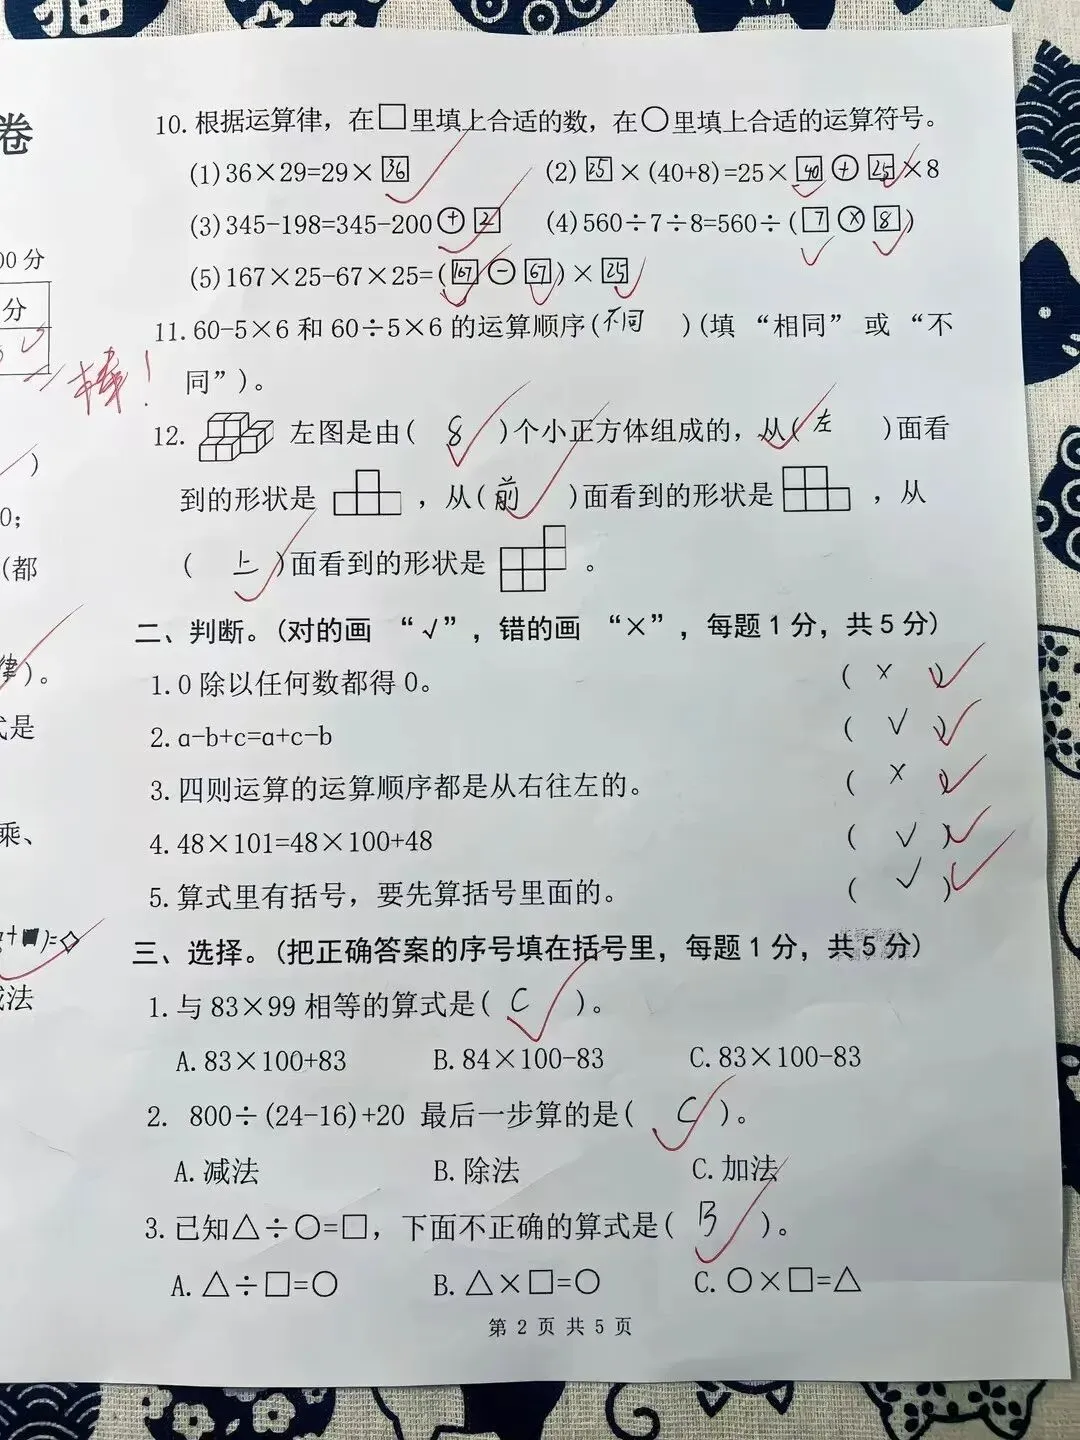 卷
00分
分
棒！
)
0;
(都
律)。
式是
乘、
)=◇
法
10.根据运算律，在□里填上合适的数，在○里填上合适的运算符号。
(1)36×29=29×36 (2)25×(40+8)=25×40+25×8
(3)345-198=345-200+2 (4)560÷7÷8=560÷(7×8)
(5)167×25-67×25=(167-67)×25
11.60-5×6和60÷5×6的运算顺序(不同)(填“相同”或“不
同”)。
12. 左图是由(8)个小正方体组成的，从(左)面看
到的形状是 ，从(前)面看到的形状是 ，从
(上)面看到的形状是 。
二、判断。(对的画“√”，错的画“×”，每题1分，共5分)
1.0除以任何数都得0。 (×)
2.a-b+c=a+c-b (√)
3.四则运算的运算顺序都是从右往左的。 (×)
4.48×101=48×100+48 (√)
5.算式里有括号，要先算括号里面的。 (√)
三、选择。(把正确答案的序号填在括号里，每题1分，共5分)
1.与83×99相等的算式是(C)。
A.83×100+83 B.84×100-83 C.83×100-83
2. 800÷(24-16)+20 最后一步算的是(C)。
A.减法 B.除法 C.加法
3.已知△÷○=□，下面不正确的算式是(B)。
A.△÷□=○ B.△×□=○ C.○×□=△
第 2 页 共 5 页